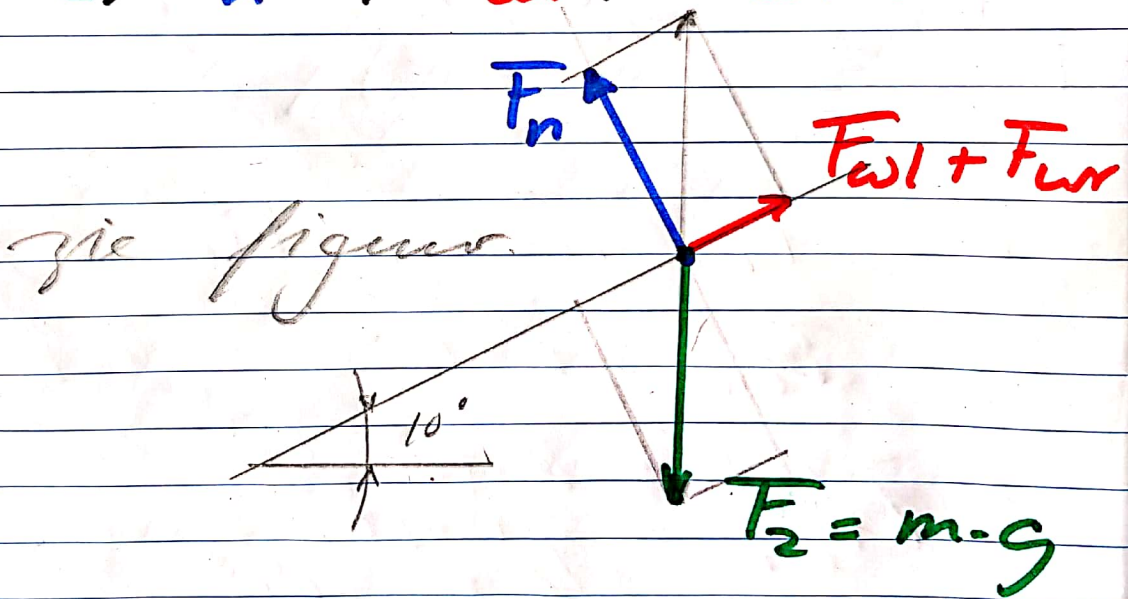 F̅n
F̅wl + F̅wr
zie figuur.
10°
F̅z = m·g